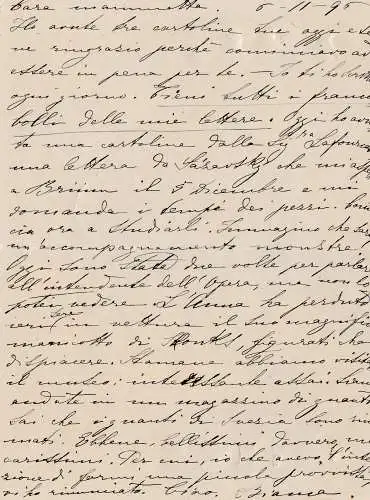 Cara mammetta. 6-11-95
Ho avute tre cartoline sue oggi e
ne ringrazio perché cominciavo ad
essere in pena per te. Io ti ho
ogni giorno. Tieni tutti i franco
bolli delle mie lettere. Oggi ho avu
ta una cartolina dalla Sig.ra
una lettera da che
a Brünn il 5 Dicembre e mi
domanda i tempi dei pezzi.
cia ora a studiarli. Immagino che
un accompagnamento monstre!
Oggi sono stata due volte per parlar
all'intendente dell'Opera, ma non lo
potei vedere. L'Anna ha perduto
ieri sera in vettura il suo magnifi
manicotto di Skonks, figurati ha
dispiacere. Stamane abbiamo visita
il museo: interessante assai. Siam
andate in un magazzino di guanti
sai che i guanti di Svezia sono
mati. Ebbene, bellissimi, davvero, ma
carissimi. Per cui, io che avevo l'inten
zione di farmi una piccola provvista
vi ho rinunciato.